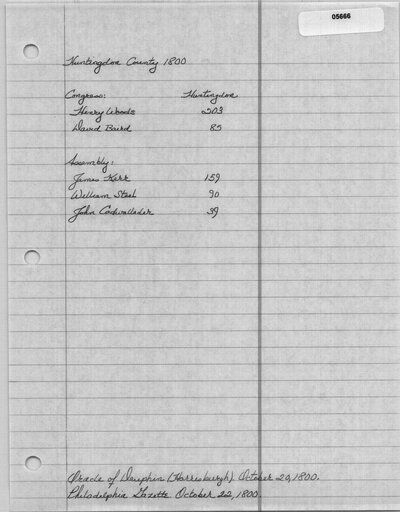 05666
Huntingdon County 1800
Congress: Huntingdon
Henry Woods 203
David Baird 85
Assembly:
James Kerr 159
William Steel 90
John Cadwallader 39
Oracle of Dauphin (Harrisburgh). October 20, 1800.
Philadelphia Gazette October 22, 1800